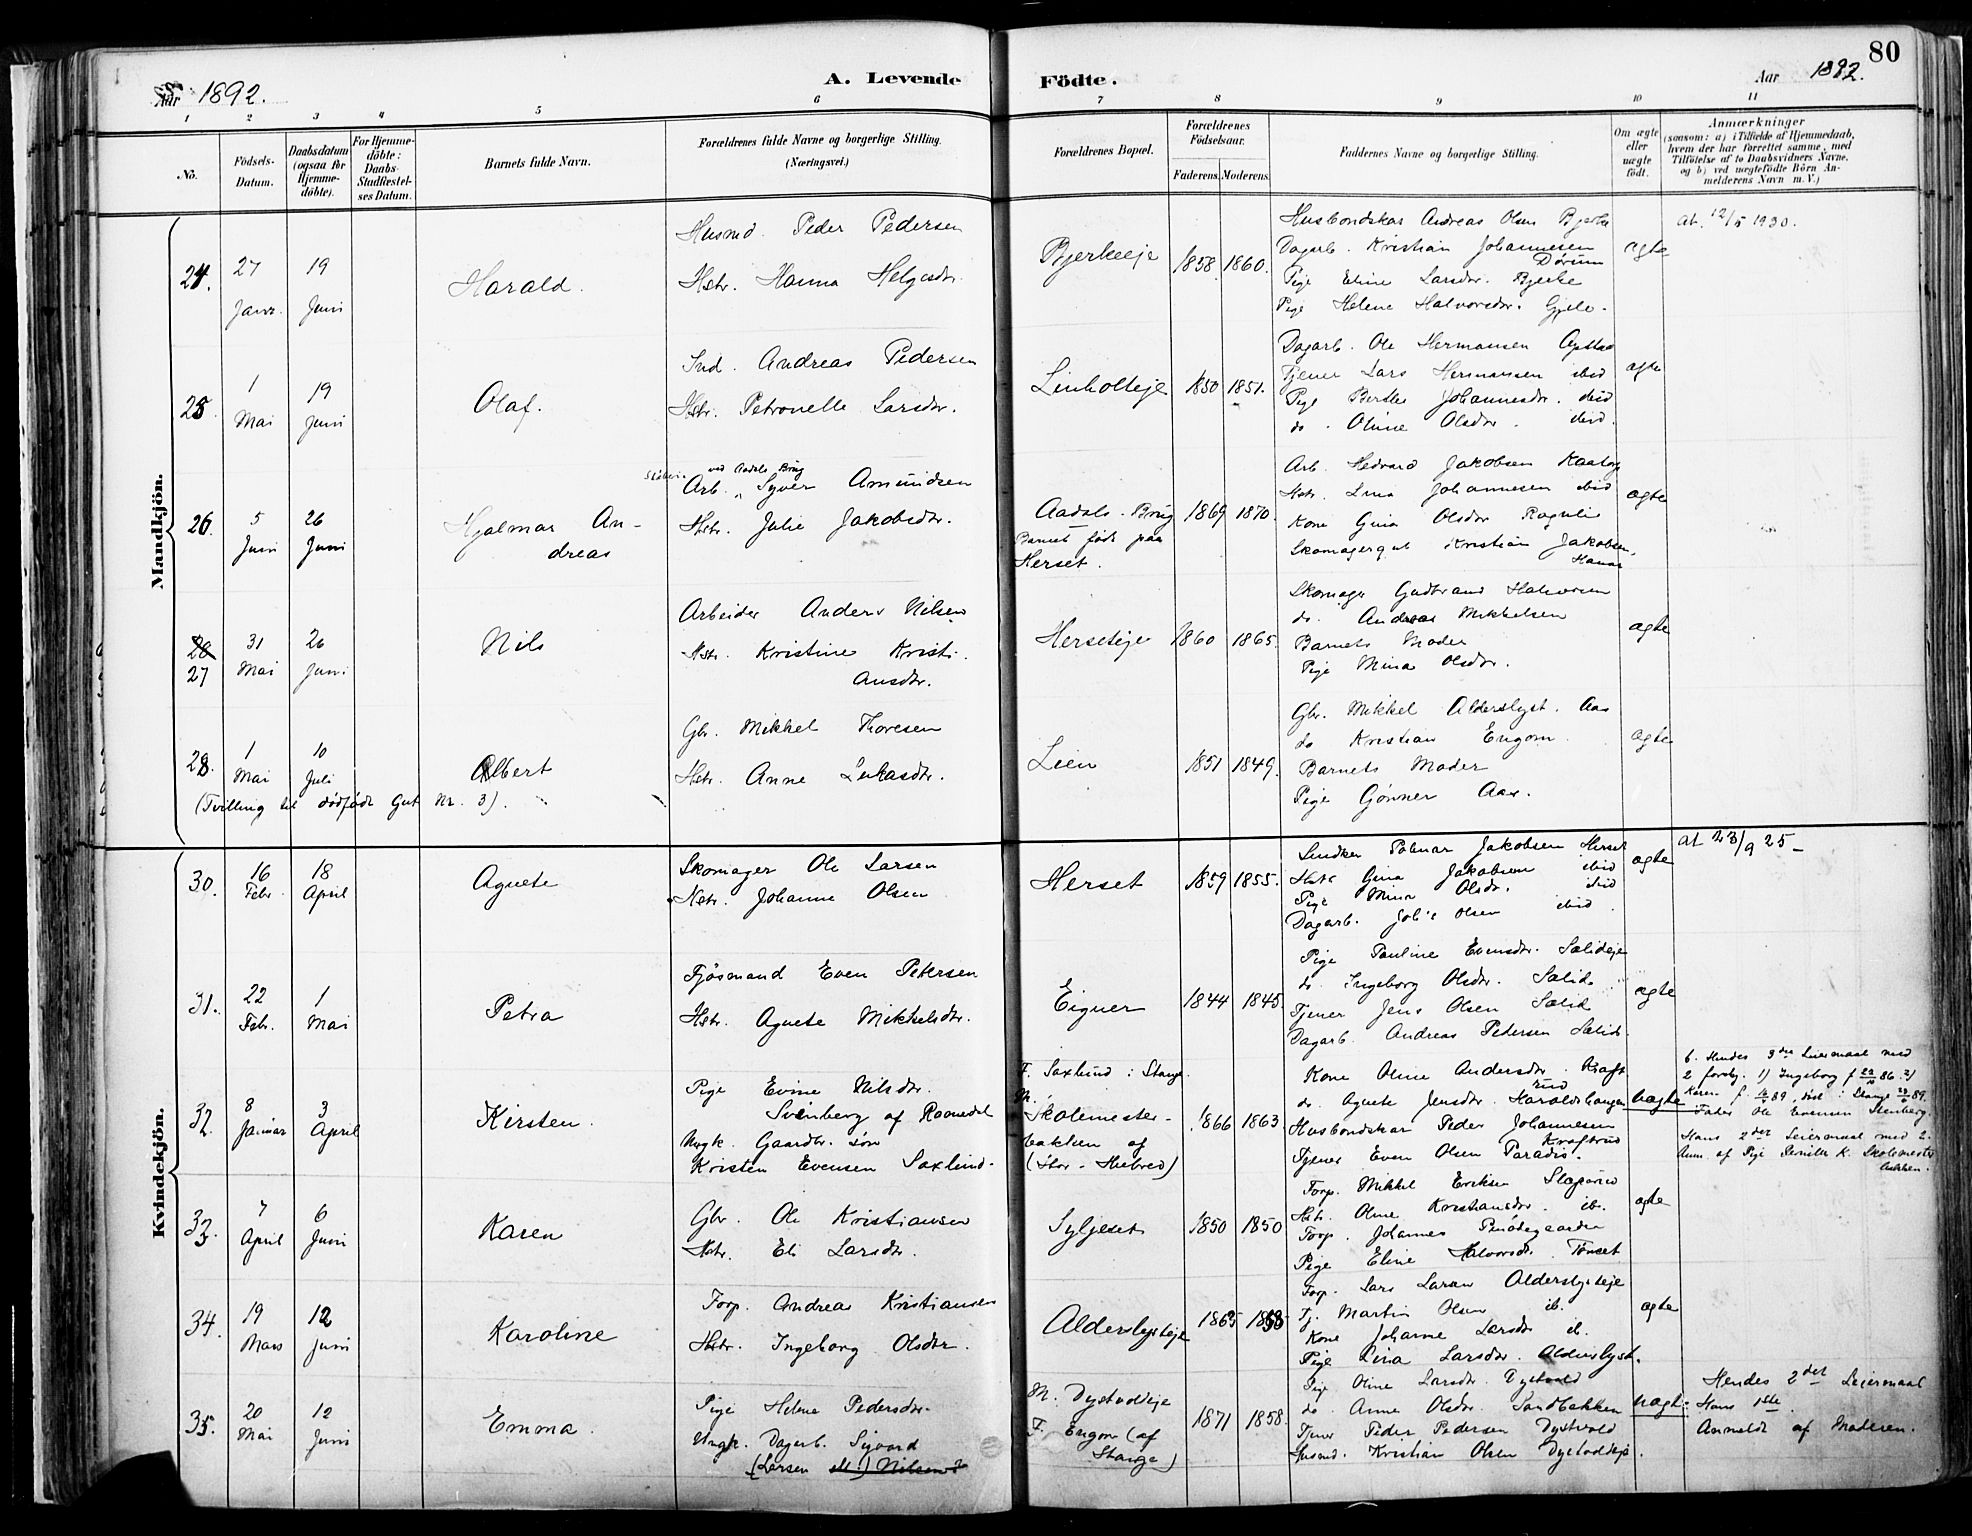 80
Aar 1892.
A. Levende Födte.
Aar 1892.
1 2 3 4 5 6 7 8 9 10 11
No.
Födsels-
Datum.
Daabsdatum
(ogsaa for
Hjemme-
döbte).
For Hjemme-
döbte:
Daabs-
Stadfæstel-
ses Datum.
Barnets fulde Navn.
Forældrenes fulde Navne og borgerlige Stilling.
(Næringsvei.)
Forældrenes Bopæl.
Forældrenes
Födselsaar.
Faderens. Moderens.
Faddernes Navne og borgerlige Stilling.
Om ægte
eller
uægte
födt.
Anmærkninger
(saasom: a) i Tilfælde af Hjemmedaab,
hvem der har forrettet samme, med
Tilföielse af to Daabsvidners Navne,
og b) ved uægtefödte Börn An-
melderens Navn m. V.)
Mandkjön.
24. 27 Janr. 19 Juni
Harald.
Husmd. Peder Pedersen
Hstr. Hanna Helgesdtr.
Bjerkeeje 1858. 1860.
Husbondskar Andreas Olsen Bjerke
Dagarb. Kristian Johannesen
Dørum
Pige Eline Larsdtr. Bjerke
Pige Helene Halvorsdtr. Gjele.
ægte
at. 12/5 1930.
25. 1 Mai 19 Juni
Olaf.
Ind. Andreas Pedersen
Hstr. Petronelle Larsdtr.
Linholteje 1850 1851.
Dagarb. Ole Hermansen
Tjener Lars Hermansen ibid
Pige Berthe Johannesdtr. ibid
do. Oline Olsdtr. ibid.
ægte
26. 5 Juni 26 Juni
Hjalmar An-
dreas
ved Aadals Brug
Arb. Syver Amundsen
Hstr. Julie Jakobsdtr.
Aadals-Brug
Barnet født paa
Herset.
1869 1870.
Arb. Hedvard Jakobsen
Hstr. Lina Johannesen ibid
Kone Gina Olsdtr
Skomagergut Kristian Jakobsen,
Hamar
ægte
28
27 31 Mai 26 Juni
Nils
Arbeider Anders Nilsen
Hstr. Kristine Kristi-
ansdtr.
Herseteje 1860 1865.
Skomager Gudbrand Halvorsen
do. Andreas Mikkelsen
Barnets Moder
Pige Mina Olsdtr.
ægte
28. 1 Mai 10 Juli
Albert
(Tvilling til dødfødt Gut Nr. 3).
Gbr. Mikkel Thoresen
Hstr. Anne Lukasdtr.
Lien 1851 1849.
Gbr. Mikkel Alderslyst. Aas
do Kristian Engom.
Barnets Moder
Pige Gønner Aas.
ægte
Kvindekjön.
30. 16 Febr. 18 April
Agnete
Skomager Ole Larsen
Hstr. Johanne Olsen
Herset 1859 1855.
Snedker Palmar Jakobsen Herset
Hstr Gina Jakobsen ibid
Pige Mina Olsdtr. ibid
Dagarb. Joh's Olsen ibid.
ægte
at 23/9 25 -
31. 22 Febr. 1 Mai
Petra
Fjøsmand Even Petersen
Hstr. Agnete Mikkelsdtr.
Eigner 1844 1845.
Pige Pauline Evensdtr. Sælideje
do. Ingeborg Olsdtr. Sælid.
Tjener Jens Olsen Sælid
Dagarb. Andreas Pedersen Sælid.
ægte
32. 8 Januar 3 April
Kirsten.
Pige Evine Nilsdtr.
Svenberg af Romedal
Ungk. Gaardbr. søn
Kristen Evensen Saxlund.
F. Saxlund i Stange.
M.
Skolemester-
bakken af
1866 1863.
Kone Oline Andersdtr. Kraft-
rud
do. Agnete Jensdtr. Haraldshaugen
Husbondskar Peder Johannesen
Kraftrud
Tjener Even Olsen Paradis.
uægte
b. Hendes 3die Leiermaal med
2 forskj. 1) Ingeborg
Fader Ole Evensen Stenberg.
Hans 2det Leiermaal med 2.
Anm. af Pige Pernille K. Skolemester-
bakken.
33. 7 April 6 Juni
Karen
Gbr. Ole Kristiansen
Hstr. Eli Larsdtr.
Syljeset 1850 1850
Torp. Mikkel Eriksen
Hstr. Oline Kristiansdtr. ib.
Torp. Johannes
Pige Eline Halvorsdtr. Tønset
ægte
34. 19 Mars 12 Juni
Karoline
Torp. Andreas Kristiansen
Hstr. Ingeborg Olsdtr.
Alderslysteje
Torp. Lars Larsen Alderslysteje
Tj. Martin Olsen ib.
Kone Johanne Larsdtr ib.
Pige Lina Larsdtr. Alderslyst.
ægte
35. 20 Mai 12 Juni
Emma.
Pige Helene Pedersdtr.
Ungk. Dagarb. Syvard
(Larsen ell.) Nilsen?
M. Dystvoldeje
F. Engom (af
Stange)
1871 1858.
Pige Oline Larsdtr. Dystvold
do. Anne Olsdtr. Sandbakken
Tjener Peder Pedersen Dystvold
Husmd. Kristian Olsen Dystvoldeje.
uægte
Hendes 2det Leiermaal
Hans 1ste
Anmeldt af Moderen.